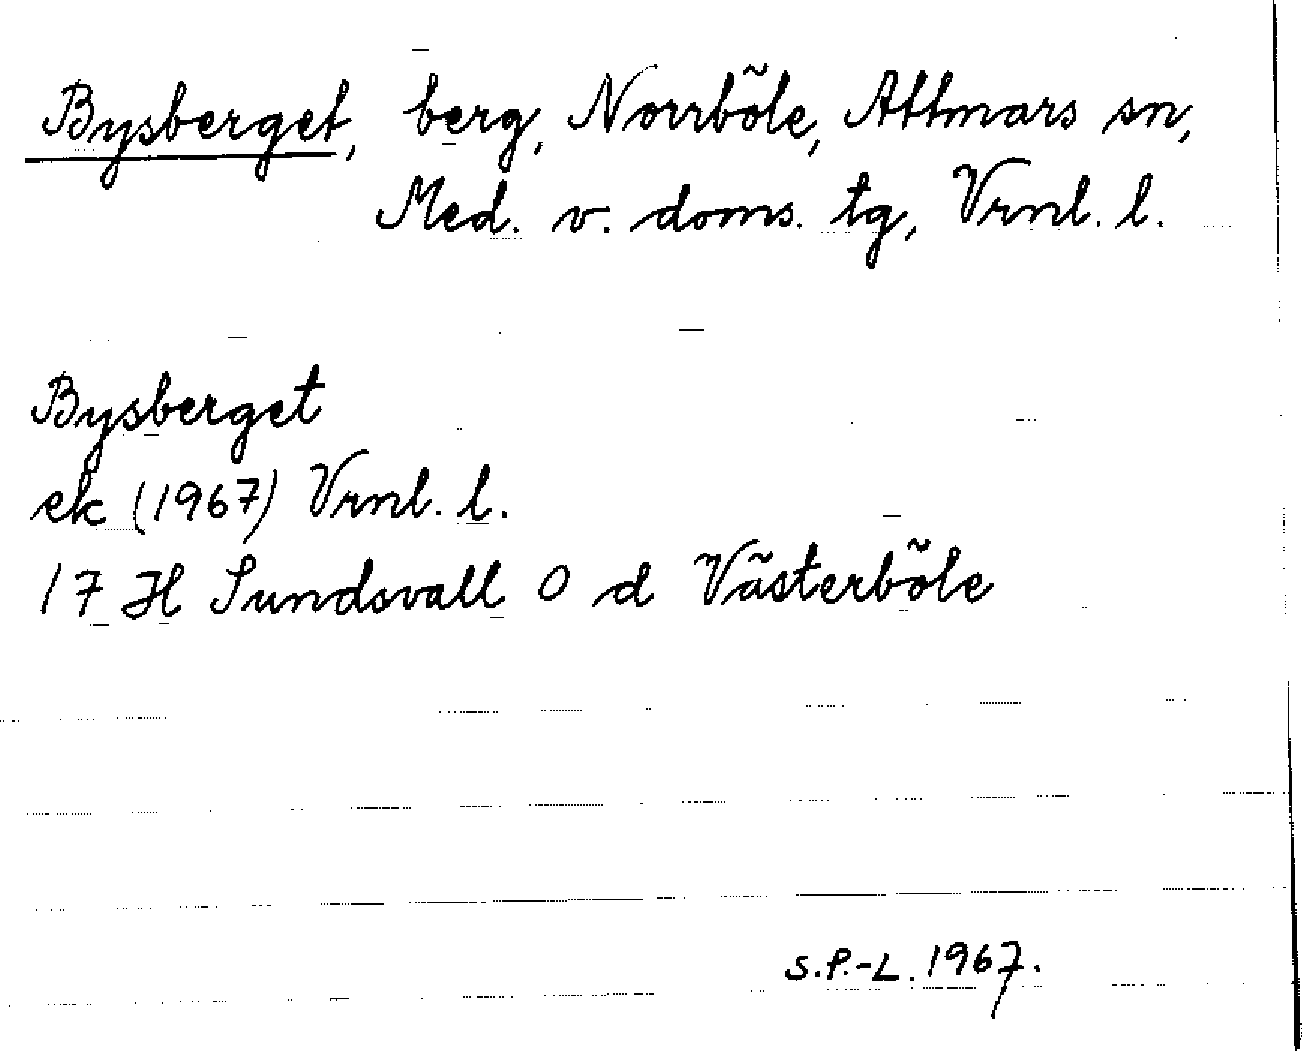 Bysberget, berg, Norrböle, Attmars sn,
Med. v. doms. tg, Vrnl. l.
Bysberget
ek (1967) Vrnl. l.
17 H Sundsvall O d Västerböle
S.P.-L. 1967.